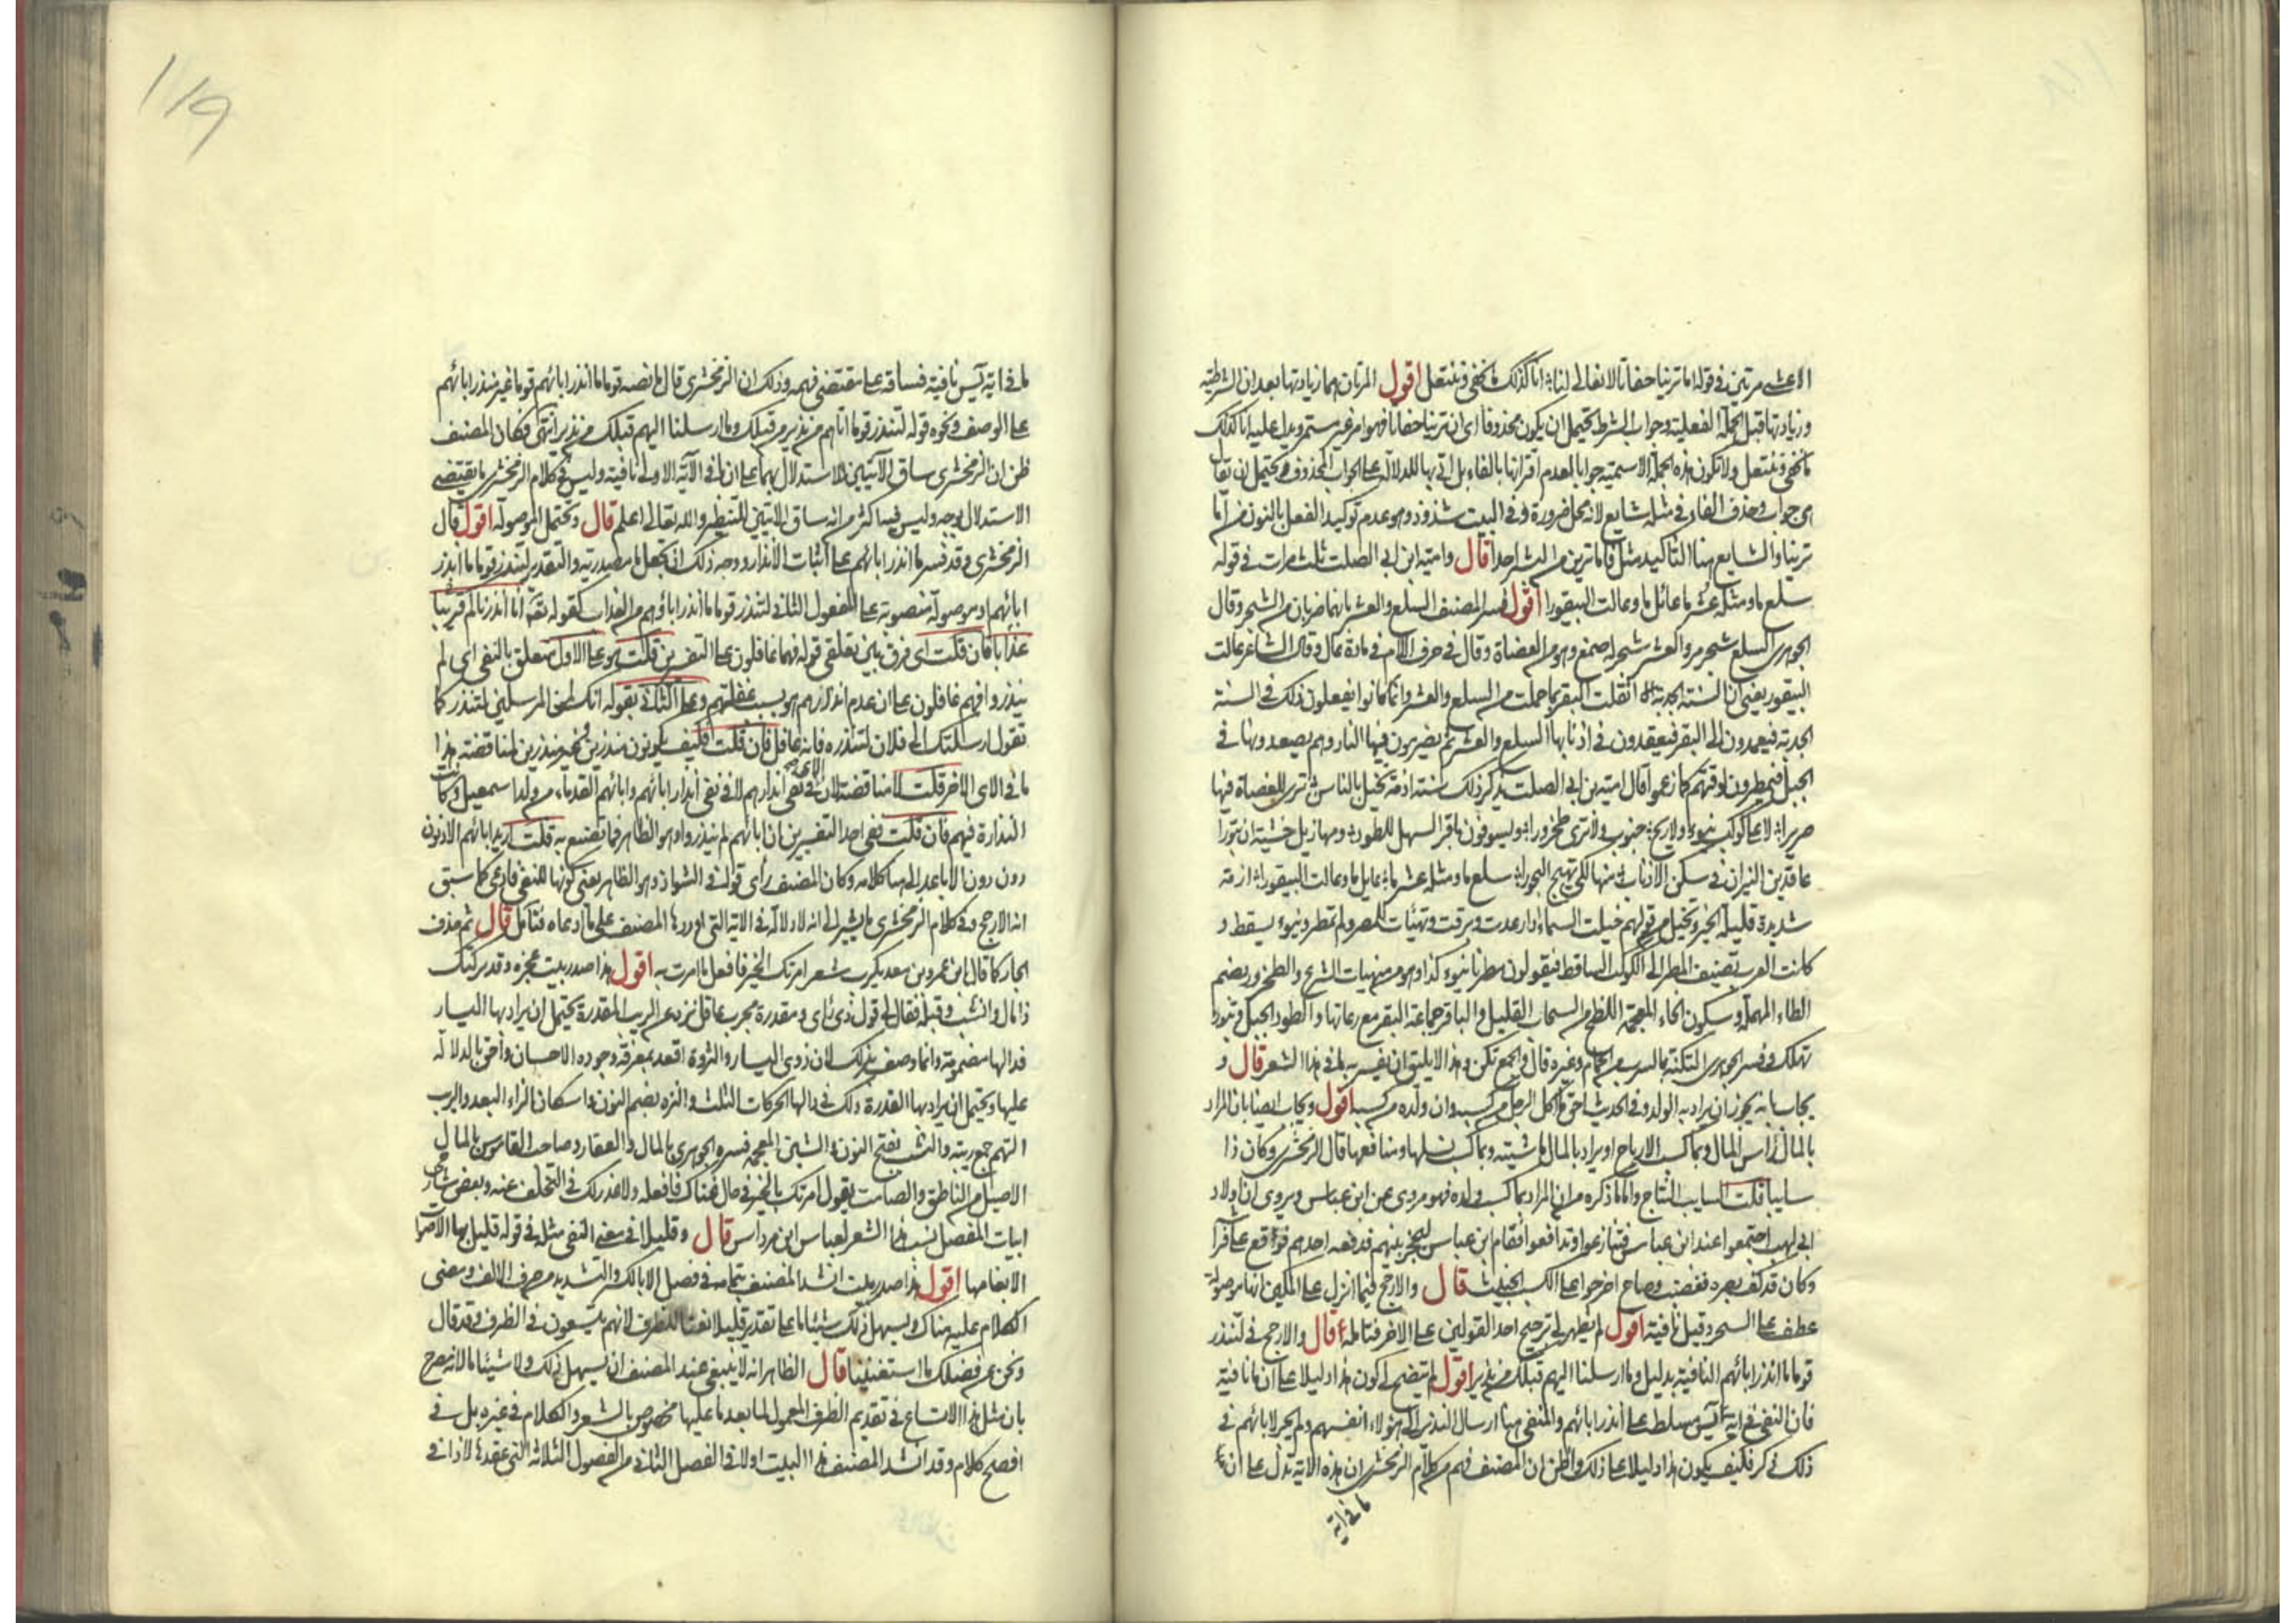 الاعشى مرتين في قوله اما ترينا حفاة لا نعال لنا انا كذلك ما نحفى وننتعل اقول المرتان هما زيادتها بعد ان الشرطية
وزيادتها قبل الجملة الفعلية وجواب الشرط يحتمل ان يكون محذوفا اى ان ترينا حفاة فهو امر غير مستمر ويدل عليه انا كذلك
ما نحفى وننتعل ولا تكون هذه الجملة الاسمية جوابا لعدم اقترانها بالفاء بل اتى بها للدلالة على الجواب المحذوف ويحتمل ان يقال
هي جواب وحذف الفاء في مثله شايع لانه محل ضرورة وفي البيت شذوذ وهو عدم توكيد الفعل بالنون من اما
ترينا والشايع هنا التأكيد مثل فاما ترين من البشر احدا قال وامية ابن ابي الصلت ثلث مرات في قوله
سلع ما ومثله عشر ما عائل ما وعالت البيقورا اقول فسر المصنف السلع والعشر بانهما ضربان من الشجر وقال
الجوهري السلع شجر مر والعشر شجر له صمغ وهو من العضاة وقال في حرف اللام في مادة عال وقال الشاعر عالت
البيقور يعني ان السنة الجدبة اثقلت البقر بما حملت من السلع والعشر وانما كانوا يفعلون ذلك في السنة
الجدبة فيعمدون الى البقر فيعقدون في اذنابها السلع والعشر ثم يضربون فيها النار وهم يصعدونها في
الجبل فيمطرون لوقتهم كما زعموا قال امية بن ابي الصلت يذكر ذلك سنة ازمة تخيل بالناس ترى للعضاة فيها
صريرا لا على كوكب ينوء ولا ريح جنوب ولا ترى طخرورا ويسوقون باقر السهل للطود مهازيل خشية ان تبورا
عاقدين النيران في سكن الاذناب منها لكي تهيج البحورا سلع ما ومثله عشر ما عايل ما وعالت البيقورا ازمة
شديدة قليلة الخير وتخيل من قولهم خيلت السماء اذا رعدت وبرقت وتهيئات للمطر ولم تمطر وينوء يسقط و
كانت العرب تضيف المطر الى الكوكب الساقط فيقولون مطرنا بنوء كذا وهو من منهيات الشرع والطخرور بضم
الطاء المهملة وسكون الخاء المعجمة اللطخ من السحاب القليل والباقر جماعة البقر مع رعاتها والطود الجبل وتبورا
تهلك وفسر الجوهري التكنة بالسرب من الحمام وغيره قال والجمع تكن وهذا لا يليق ان يفسر به ما في هذا الشعر قال و
يجاب بانه يجوز ان يراد به الولد وفي الحديث احق ما اكل الرجل من كسبه وان ولده من كسبه اقول ويجاب ايضا بان المراد
بالمال راس المال وبما كسب الارباح او يراد بالمال ماشيته وبما كسب نسلها ومنافعها قال الزمخشري وكان ذا
سايبا قلت السايب النتاج واما ما ذكره من ان المراد بما كسب ولده فهو مروى عن ابن عباس ويروى ان اولاد
ابي لهب اجتمعوا عند ابن عباس فتنازعوا وتدافعوا فقام ابن عباس ليحجز بينهم فدفعه احدهم فوقع على فراش
وكان قد كف بصره فغضب وصاح اخرجوا عنا الكسب الخبيث قال والارجح فيما انزل على الملكين انها موصولة
عطف على السحر وقيل نافية اقول لم يظهر لي ترجيح احد القولين على الاخر فتامله قال والارجح في لتنذر
قوما ما انذر اباؤهم النافية بدليل وما ارسلنا اليهم قبلك من نذير اقول لم يتضح لي كون هذا دليلا على ان ما نافية
فان النفي في اية يس مسلط على انذر اباؤهم والمنفي هنا ارسال النذير الى هؤلاء انفسهم ولم يجر لابائهم في
ذلك ذكر فكيف يكون هذا دليلا على ذلك واظن ان المصنف فهم من كلام الزمخشري ان هذه الاية تدل على ان
ما في اية
١١٩
ما في اية يس نافية فساقه على مقتضى فهمه وذلك ان الزمخشري قال ما نصه قوما ما انذر اباؤهم قوما غير منذر اباؤهم
على الوصف ونحوه قوله لتنذر قوما ما اتاهم من نذير من قبلك وما ارسلنا اليهم قبلك من نذير انتهى فكان المصنف
ظن ان الزمخشري ساق الآيتين للاستدلال بهما على ان ما في الآية الاولى نافية وليس في كلام الزمخشري ما يقتضى
الاستدلال بوجه وليس فيه اكثر من انه ساق الايتين للتنظير والله تعالى اعلم قال وتحتمل الموصولة اقول قال
الزمخشري وقد فسر ما انذر اباؤهم على اثبات الانذار ووجه ذلك ان تجعل ما مصدرية والتقدير لتنذر قوما ما انذر
ابائهم او موصولة منصوبة على المفعول الثاني لتنذر قوما ما انذر اباؤهم من العذاب كقوله تعالى انا انذرناكم قريبا
عذابا فان قلت اى فرق بين تعلقي قوله فهم غافلون على التفسيرين قلت هو على الاول متعلق بالنفي اى لم
ينذروا فهم غافلون على ان عدم انذارهم هو سبب غفلتهم وعلى الثاني بقوله انك لمن المرسلين لتنذر كما
تقول ارسلتك الى فلان لتنذره فانه غافل فان قلت فكيف يكونون منذرين غير منذرين لمناقضة هذا
ما في الاى الاخر قلت لا مناقضة لان الاى في نفي انذارهم لا في نفي انذار ابائهم واباؤهم القدماء من ولد اسمعيل وكانت
النذارة فيهم فان قلت ففي احد التفسيرين ان اباءهم لم ينذروا وهو الظاهر فما تصنع به قلت اريد اباؤهم الادنون
دون الاباعد الى هنا كلامه وكان المصنف رأى قوله في الشواذ وهو الظاهر يعني كونها للنفي فادعى كما سبق
انه الارجح وفي كلام الزمخشري ما يشير الى انه لا دلالة في الاية التي اوردها المصنف على ما ادعاه فتامل قال ثم حذف
الجار كما قال ابن عمرو بن معديكرب شعر امرتك الخير فافعل ما امرت به اقول هذا صدر بيت عجزه وقد تركتك
ذا مال وذا نشب وقبله فقال لي قول ذي راى ومقدرة مجرب عاقل نزه عن الريب المقدرة يحتمل ان يراد بها اليسار
فدالها مضمومة وانما وصف بذلك لان ذوى اليسار والثروة اقعد بمعرفة وجوه الاحسان واحق بالدلالة
عليها ويحتمل ان يراد بها القدرة ولك في دالها الحركات الثلث والنزه بضم النون واسكان الزاء البعد والريب
التهم جمع ريبة والنشب بفتح النون والشين المعجمة فسره الجوهري بالمال والعقار وصاحب القاموس بالمال
الاصيل من الناطق والصامت يقول امرتك بالخير في حال غناك فافعله ولا عذر لك في التخلف عنه وبعض شارحي
ابيات المفصل نسب هذا الشعر لعباس ابن مرداس قال وقليلا في معنى النفي مثله في قوله قليل بها الاصوات
الا بغامها اقول هذا صدر بيت انشد المصنف بتمامه في فصل الا بالكسر والتشديد من حرف الالف ومعنى
الكلام عليه هناك ويسهل ذلك شيئا ما على تقدير قليلا نعتا للظرف لانهم يتسعون في الظرف وقد قال
ونحن عن فضلك ما استغنينا قال الظاهر انه لا ينبغي عند المصنف ان يسهل ذلك ولا شيئا ما لانه صرح
بان مثل هذا الاتساع في تقديم الظرف المعمول لما بعد ما عليها مخصوص بالشعر والكلام في غيره بل في
افصح كلام وقد انشد المصنف هذا البيت اولا في الفصل الثاني من الفصول الثلاثة التي عقدها لاذا في